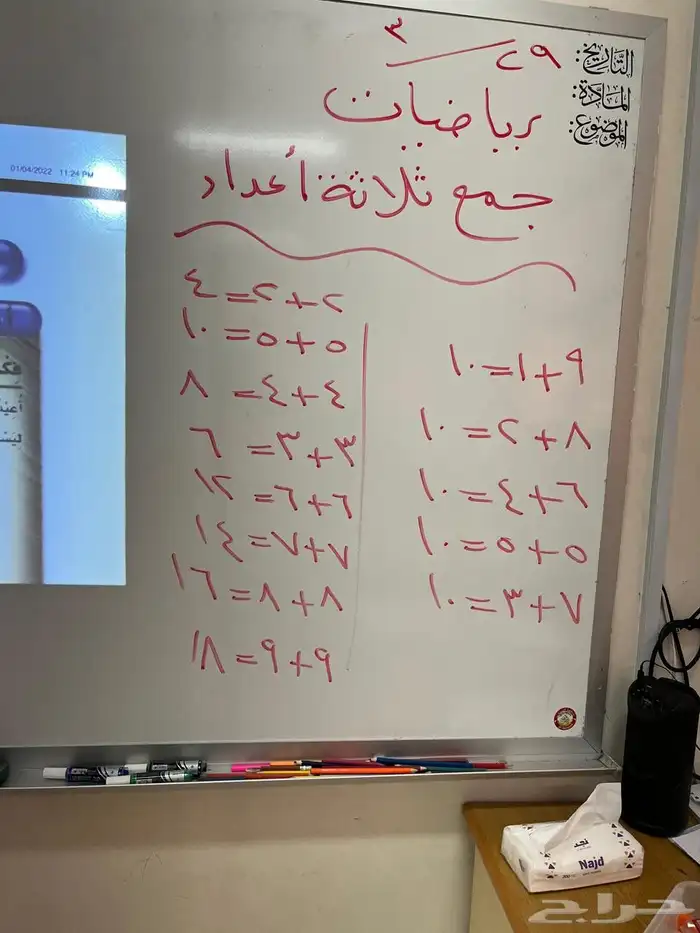 التّاريخ: ٢٩/٣
المادّة: رياضيات
الموضوع: جمع ثلاثة أعداد
٩+١=١٠
٨+٢=١٠
٦+٤=١٠
٥+٥=١٠
٧+٣=١٠
٢+٢=٤
٥+٥=١٠
٤+٤=٨
٣+٣=٦
٦+٦=١٢
٧+٧=١٤
٨+٨=١٦
٩+٩=١٨
01/04/2022 11:24 PM
نجد
Najd
حراج